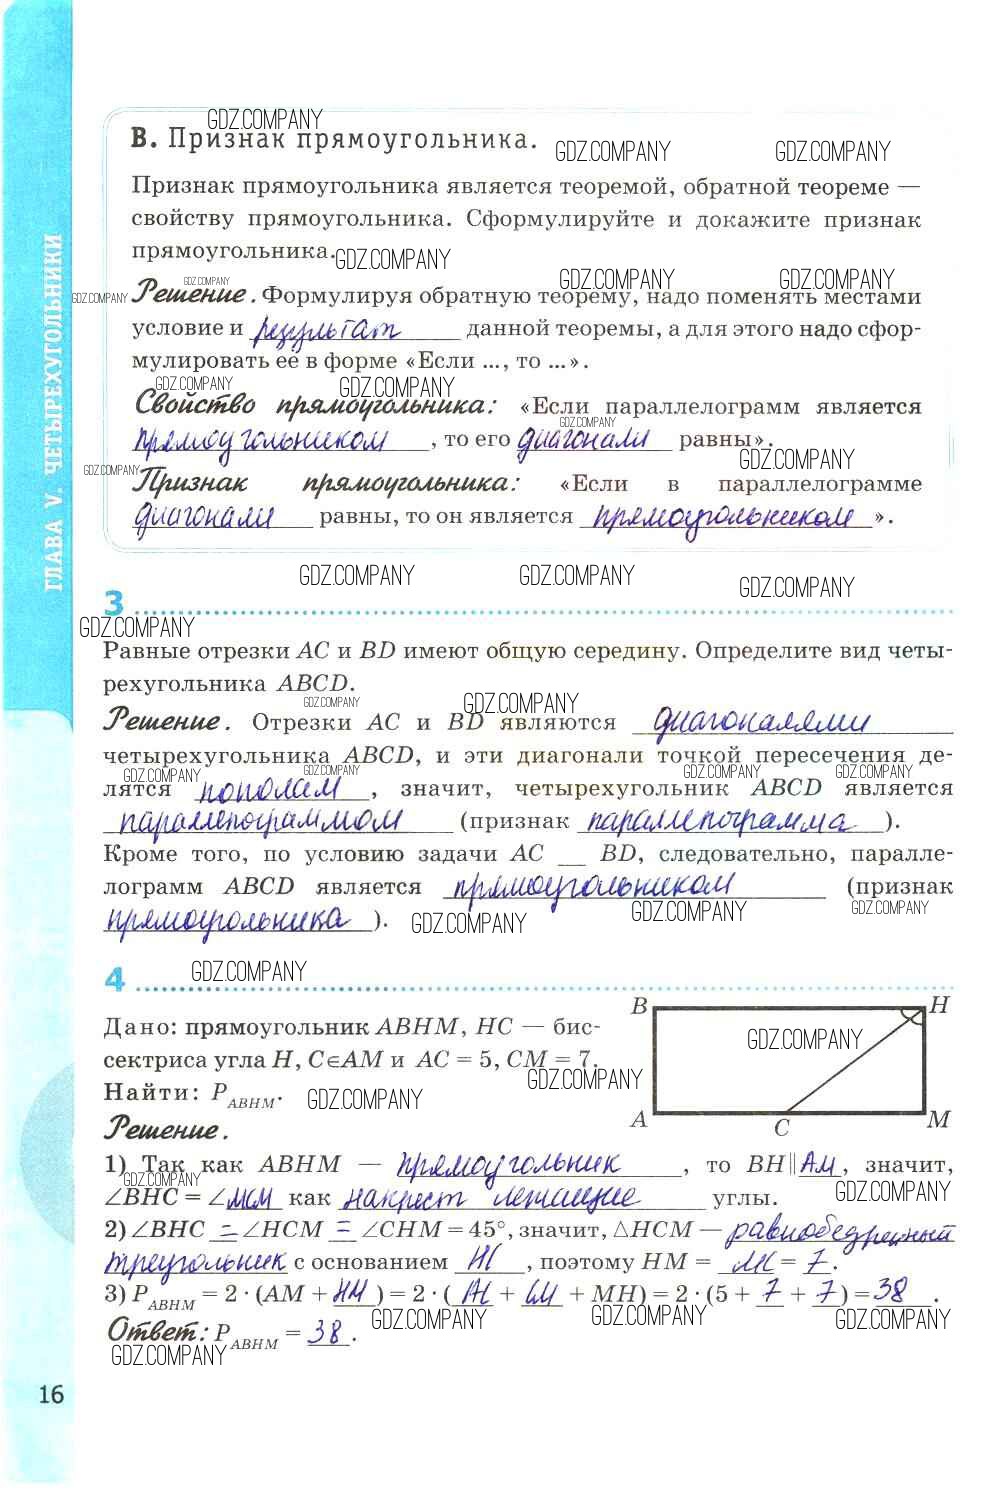 GDZ.COMPANY
В. Признак прямоугольника.
GDZ.COMPANY GDZ.COMPANY
Признак прямоугольника является теоремой, обратной теореме —
свойству прямоугольника. Сформулируйте и докажите признак
прямоугольника.
GDZ.COMPANY
GDZ.COMPANY GDZ.COMPANY
GDZ.COMPANY GDZ.COMPANY
Решение. Формулируя обратную теорему, надо поменять местами
условие и результат данной теоремы, а для этого надо сфор-
мулировать её в форме «Если ..., то ...».
GDZ.COMPANY GDZ.COMPANY
Свойство прямоугольника: «Если параллелограмм является
GDZ.COMPANY
прямоугольником, то его диагонали равны».
GDZ.COMPANY GDZ.COMPANY
Признак прямоугольника: «Если в параллелограмме
диагонали равны, то он является прямоугольником».
GDZ.COMPANY GDZ.COMPANY GDZ.COMPANY
3
GDZ.COMPANY
Равные отрезки AC и BD имеют общую середину. Определите вид четы-
рехугольника ABCD.
GDZ.COMPANY GDZ.COMPANY
Решение. Отрезки AC и BD являются диагоналями
четырехугольника ABCD, и эти диагонали точкой пересечения де-
GDZ.COMPANY GDZ.COMPANY GDZ.COMPANY GDZ.COMPANY
лятся пополам, значит, четырехугольник ABCD является
параллелограммом (признак параллелограмма).
Кроме того, по условию задачи AC __ BD, следовательно, паралле-
лограмм ABCD является прямоугольником (признак
прямоугольника).
GDZ.COMPANY GDZ.COMPANY GDZ.COMPANY
4
GDZ.COMPANY
Дано: прямоугольник ABHM, HC — бис-
сектриса угла H, C∈AM и AC = 5, CM = 7.
Найти: P_ABHM.
B H
A C M
GDZ.COMPANY
GDZ.COMPANY
GDZ.COMPANY
Решение.
1) Так как ABHM — прямоугольник, то BH∥AM, значит,
GDZ.COMPANY GDZ.COMPANY
∠BHC = ∠MCH как накрест лежащие углы.
2) ∠BHC = ∠HCM = ∠CHM = 45°, значит, △HCM — равнобедренный
треугольник с основанием HC, поэтому HM = MC = 7.
3) P_ABHM = 2 · (AM + HM) = 2 · (AC + CM + MH) = 2 · (5 + 7 + 7) = 38.
GDZ.COMPANY GDZ.COMPANY GDZ.COMPANY
Ответ: P_ABHM = 38.
GDZ.COMPANY
16
ГЛАВА V. ЧЕТЫРЕХУГОЛЬНИКИ